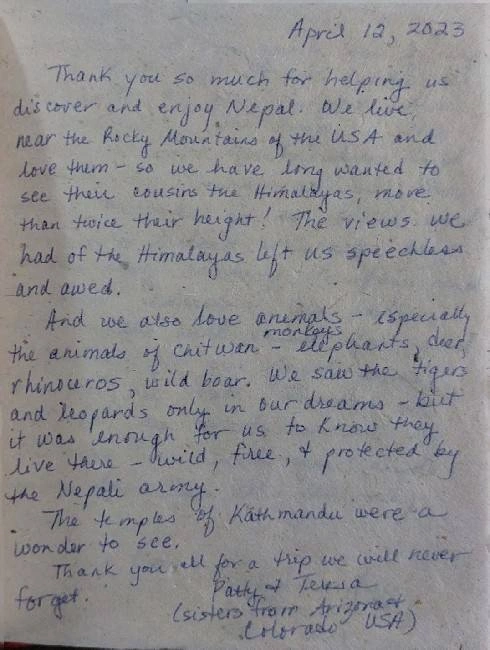 April 12, 2023
Thank you so much for helping us
discover and enjoy Nepal. We live
near the Rocky Mountains of the USA and
love them – so we have long wanted to
see their cousins the Himalayas, more
than twice their height! The views we
had of the Himalayas left us speechless
and awed.
And we also love animals – especially
the animals of Chitwan – monkeys elephants, deer,
rhinoceros, wild boar. We saw the tigers
and leopards only in our dreams – but
it was enough for us to know they
live there – wild, free, + protected by
the Nepali army.
The temples of Kathmandu were a
wonder to see.
Thank you all for a trip we will never
forget.
Patty & Teresa
(sisters from Arizona &
Colorado USA)